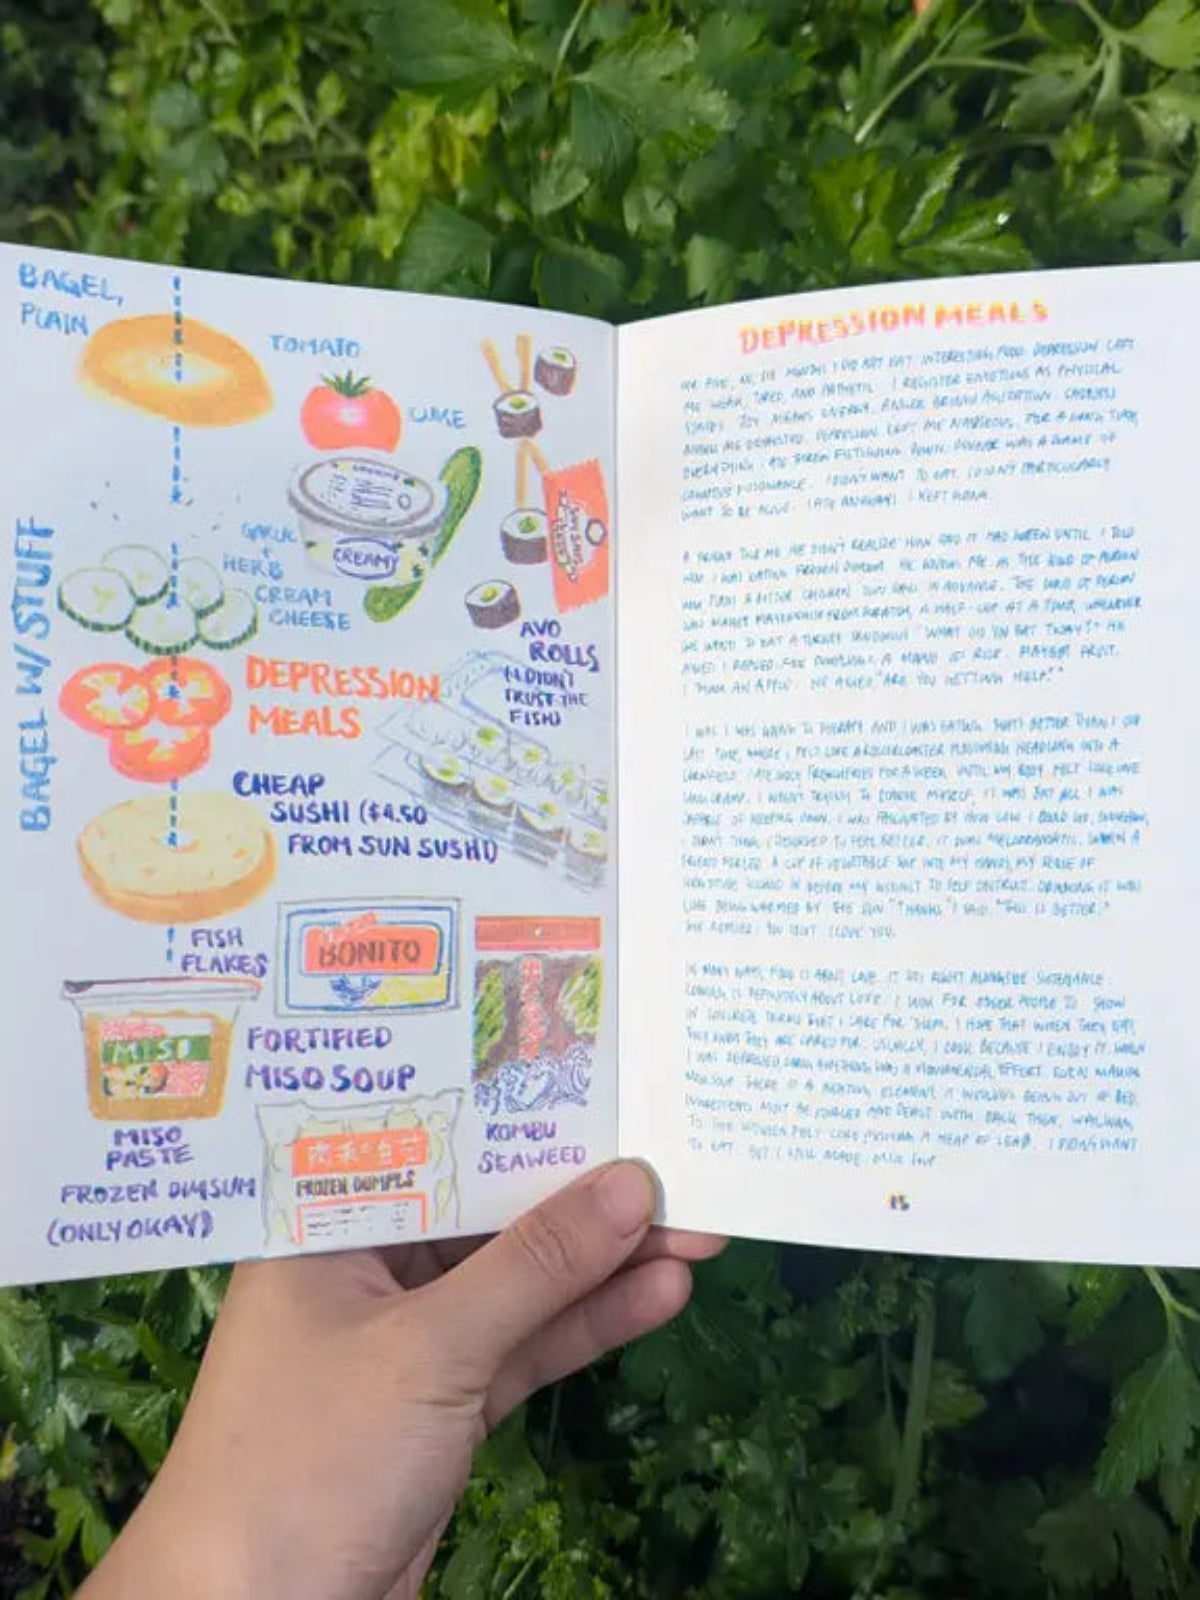 BAGEL,
PLAIN
TOMATO
CUKE
CREAMY
GARLIC
+
HERB
CREAM
CHEESE
BAGEL W/ STUFF
AVO
ROLLS
(I DIDN'T
TRUST THE
FISH)
DEPRESSION
MEALS
CHEAP
SUSHI ($4.50
FROM SUN SUSHI)
FISH
FLAKES
BONITO
MISO
FORTIFIED
MISO SOUP
MISO
PASTE
KOMBU
SEAWEED
FROZEN DIMSUM
(ONLY OKAY)
FROZEN DUMPLS
DEPRESSION MEALS
FOR FIVE, NO, SIX MONTHS I DID NOT EAT INTERESTING FOOD. DEPRESSION LEFT
ME WEAK, TIRED, AND PATHETIC. I REGISTER EMOTIONS AS PHYSICAL
STATES. JOY MEANS ENERGY. ANGER BRINGS AGITATION. SADNESS
MAKES ME EXHAUSTED. DEPRESSION LEFT ME NAUSEOUS. FOR A LONG TIME,
EVERYTHING I ATE DOWN. DINNER WAS A GAME OF
COGNITIVE DISSONANCE. I DIDN'T WANT TO EAT. I DIDN'T PARTICULARLY
WANT TO BE ALIVE. I ATE ANYWAY. I KEPT GOING.
A FRIEND TOLD ME HE DIDN'T REALIZE HOW BAD IT HAD BEEN UNTIL I TOLD
HIM I WAS EATING FROZEN DIMSUM. HE KNOWS ME AS THE KIND OF PERSON
WHO CHICKEN TWO DAYS IN ADVANCE. THE KIND OF PERSON
WHO MAKES MAYONNAISE FROM SCRATCH, A HALF-CUP AT A TIME, WHENEVER
SHE WANTS TO EAT A TURKEY SANDWICH. "WHAT DID YOU EAT TODAY?" HE
ASKED. I REPLIED, FIVE DUMPLINGS. A MOUND OF RICE. MAYBE FRUIT.
I THINK AN APPLE. HE ASKED, "ARE YOU GETTING HELP?"
I WAS. I WAS GOING TO THERAPY AND I WAS EATING. THAT'S BETTER THAN I DID
LAST TIME, WHERE I FELT LIKE A ROLLERCOASTER PLUMMETING HEADLONG INTO A
CORNFIELD. I ATE ONLY FRENCH FRIES FOR A WEEK UNTIL MY BODY FELT LIKE ONE
LONG CRAMP. I WASN'T TRYING TO STARVE MYSELF, IT WAS JUST ALL I WAS
CAPABLE OF KEEPING DOWN. I WAS FASCINATED BY HOW LOW I COULD GO.
I DIDN'T THINK I DESERVED TO FEEL BETTER. IT WAS MELODRAMATIC. WHEN A
FRIEND FORCED A CUP OF VEGETABLE SOUP INTO MY HANDS, MY SENSE OF
GRATITUDE KICKED IN BEFORE MY INSTINCT TO SELF DESTRUCT. DRINKING IT WAS
LIKE BEING WARMED BY THE SUN. "THANKS," I SAID. "THIS IS BETTER."
SHE REPLIED, I LOVE YOU.
IN MANY WAYS, FOOD IS ABOUT LOVE. IT SITS RIGHT ALONGSIDE SUSTENANCE.
COOKING IS DEFINITELY ABOUT LOVE. I COOK FOR OTHER PEOPLE TO SHOW
IN CONCRETE TERMS THAT I CARE FOR THEM. I HOPE THAT WHEN THEY EAT,
THEY KNOW THEY ARE CARED FOR. USUALLY, I COOK BECAUSE I ENJOY IT. WHEN
I WAS DEPRESSED, DOING ANYTHING WAS A MONUMENTAL EFFORT. EVEN MAKING
MISO SOUP. THERE IS A ELEMENT. IT INVOLVES GETTING OUT OF BED.
INGREDIENTS MUST BE SOURCED AND DEALT WITH. BACK THEN, WALKING
TO THE KITCHEN FELT LIKE PUSHING A HEAP OF LEAD. I DIDN'T WANT
TO EAT. BUT I STILL MADE MISO SOUP.
15